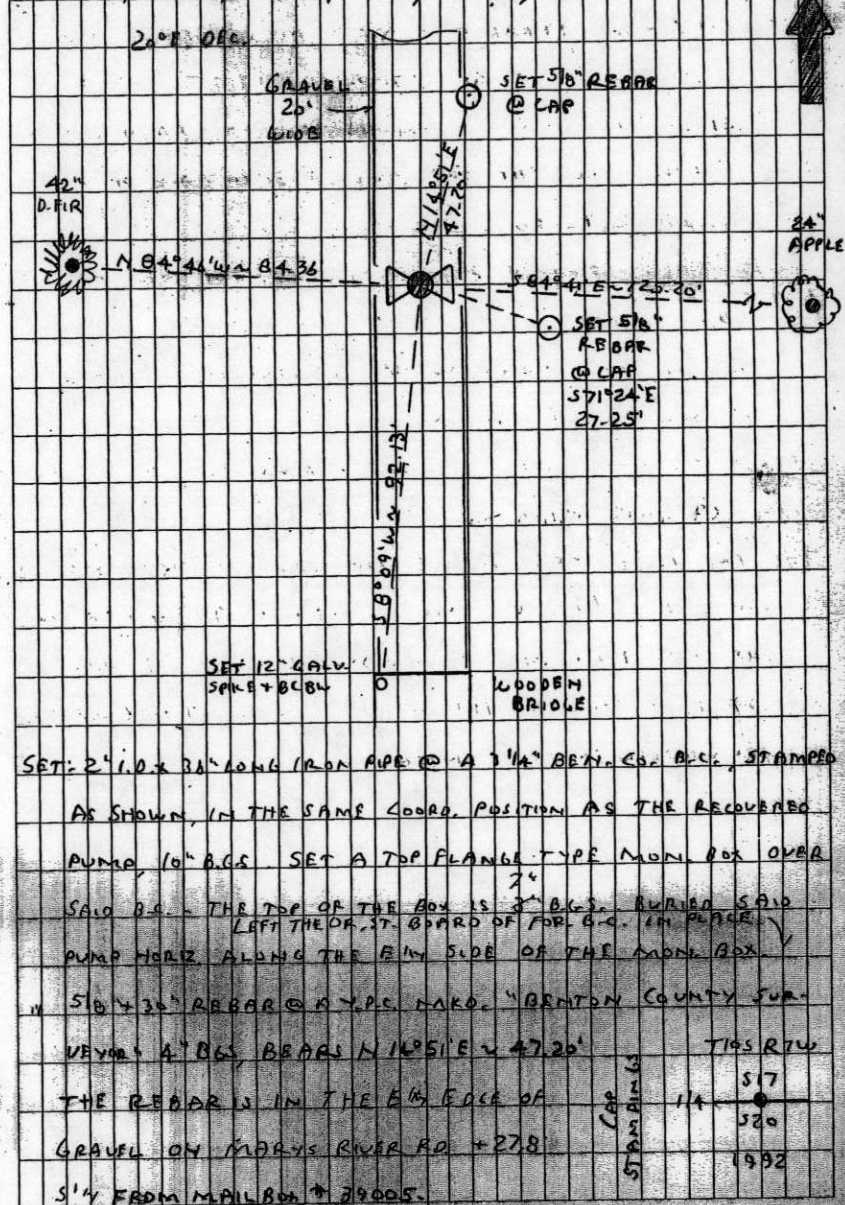 20°E DEC.
GRAVEL
20'
WIDE
SET 5/8" REBAR
@ CAP
N 14°51'E
47.20'
42"
D. FIR
N 84°46'W ~ 84.36
S 84°41'E ~ 120.20'
24"
APPLE
SET 5/8"
REBAR
@ CAP
S 71°24'E
27.25'
S 8°09'W ~ 92.13'
SET 12" GALV.
SPIKE +
WOODEN
BRIDGE
SET: 2" I.D. x 36" LONG IRON PIPE @ A 3 1/4" BEN. CO. B.C. STAMPED
AS SHOWN, IN THE SAME COORD. POSITION AS THE RECOVERED
PUMP, 10" B.G.S. SET A TOP FLANGE TYPE MON. BOX OVER
2"
SAID B.C. THE TOP OF THE BOX IS B.G.S. BURIED SAID
LEFT THE BOARD OF FOR. B.C. IN PLACE
PUMP HORIZ. ALONG THE E'LY SIDE OF THE MON. BOX.
" 5/8 x 30" REBAR @ A Y.P.C. MKD. "BENTON COUNTY SUR-
VEYOR" 4" BGS, BEARS N 14°51'E ~ 47.20'
THE REBAR IS IN THE E'LY EDGE OF
GRAVEL ON MARYS RIVER RD. +278
S'LY FROM MAILBOX # 39005.
CAP
STAMPINGS
T10S R7W
1/4
S17
S20
1992